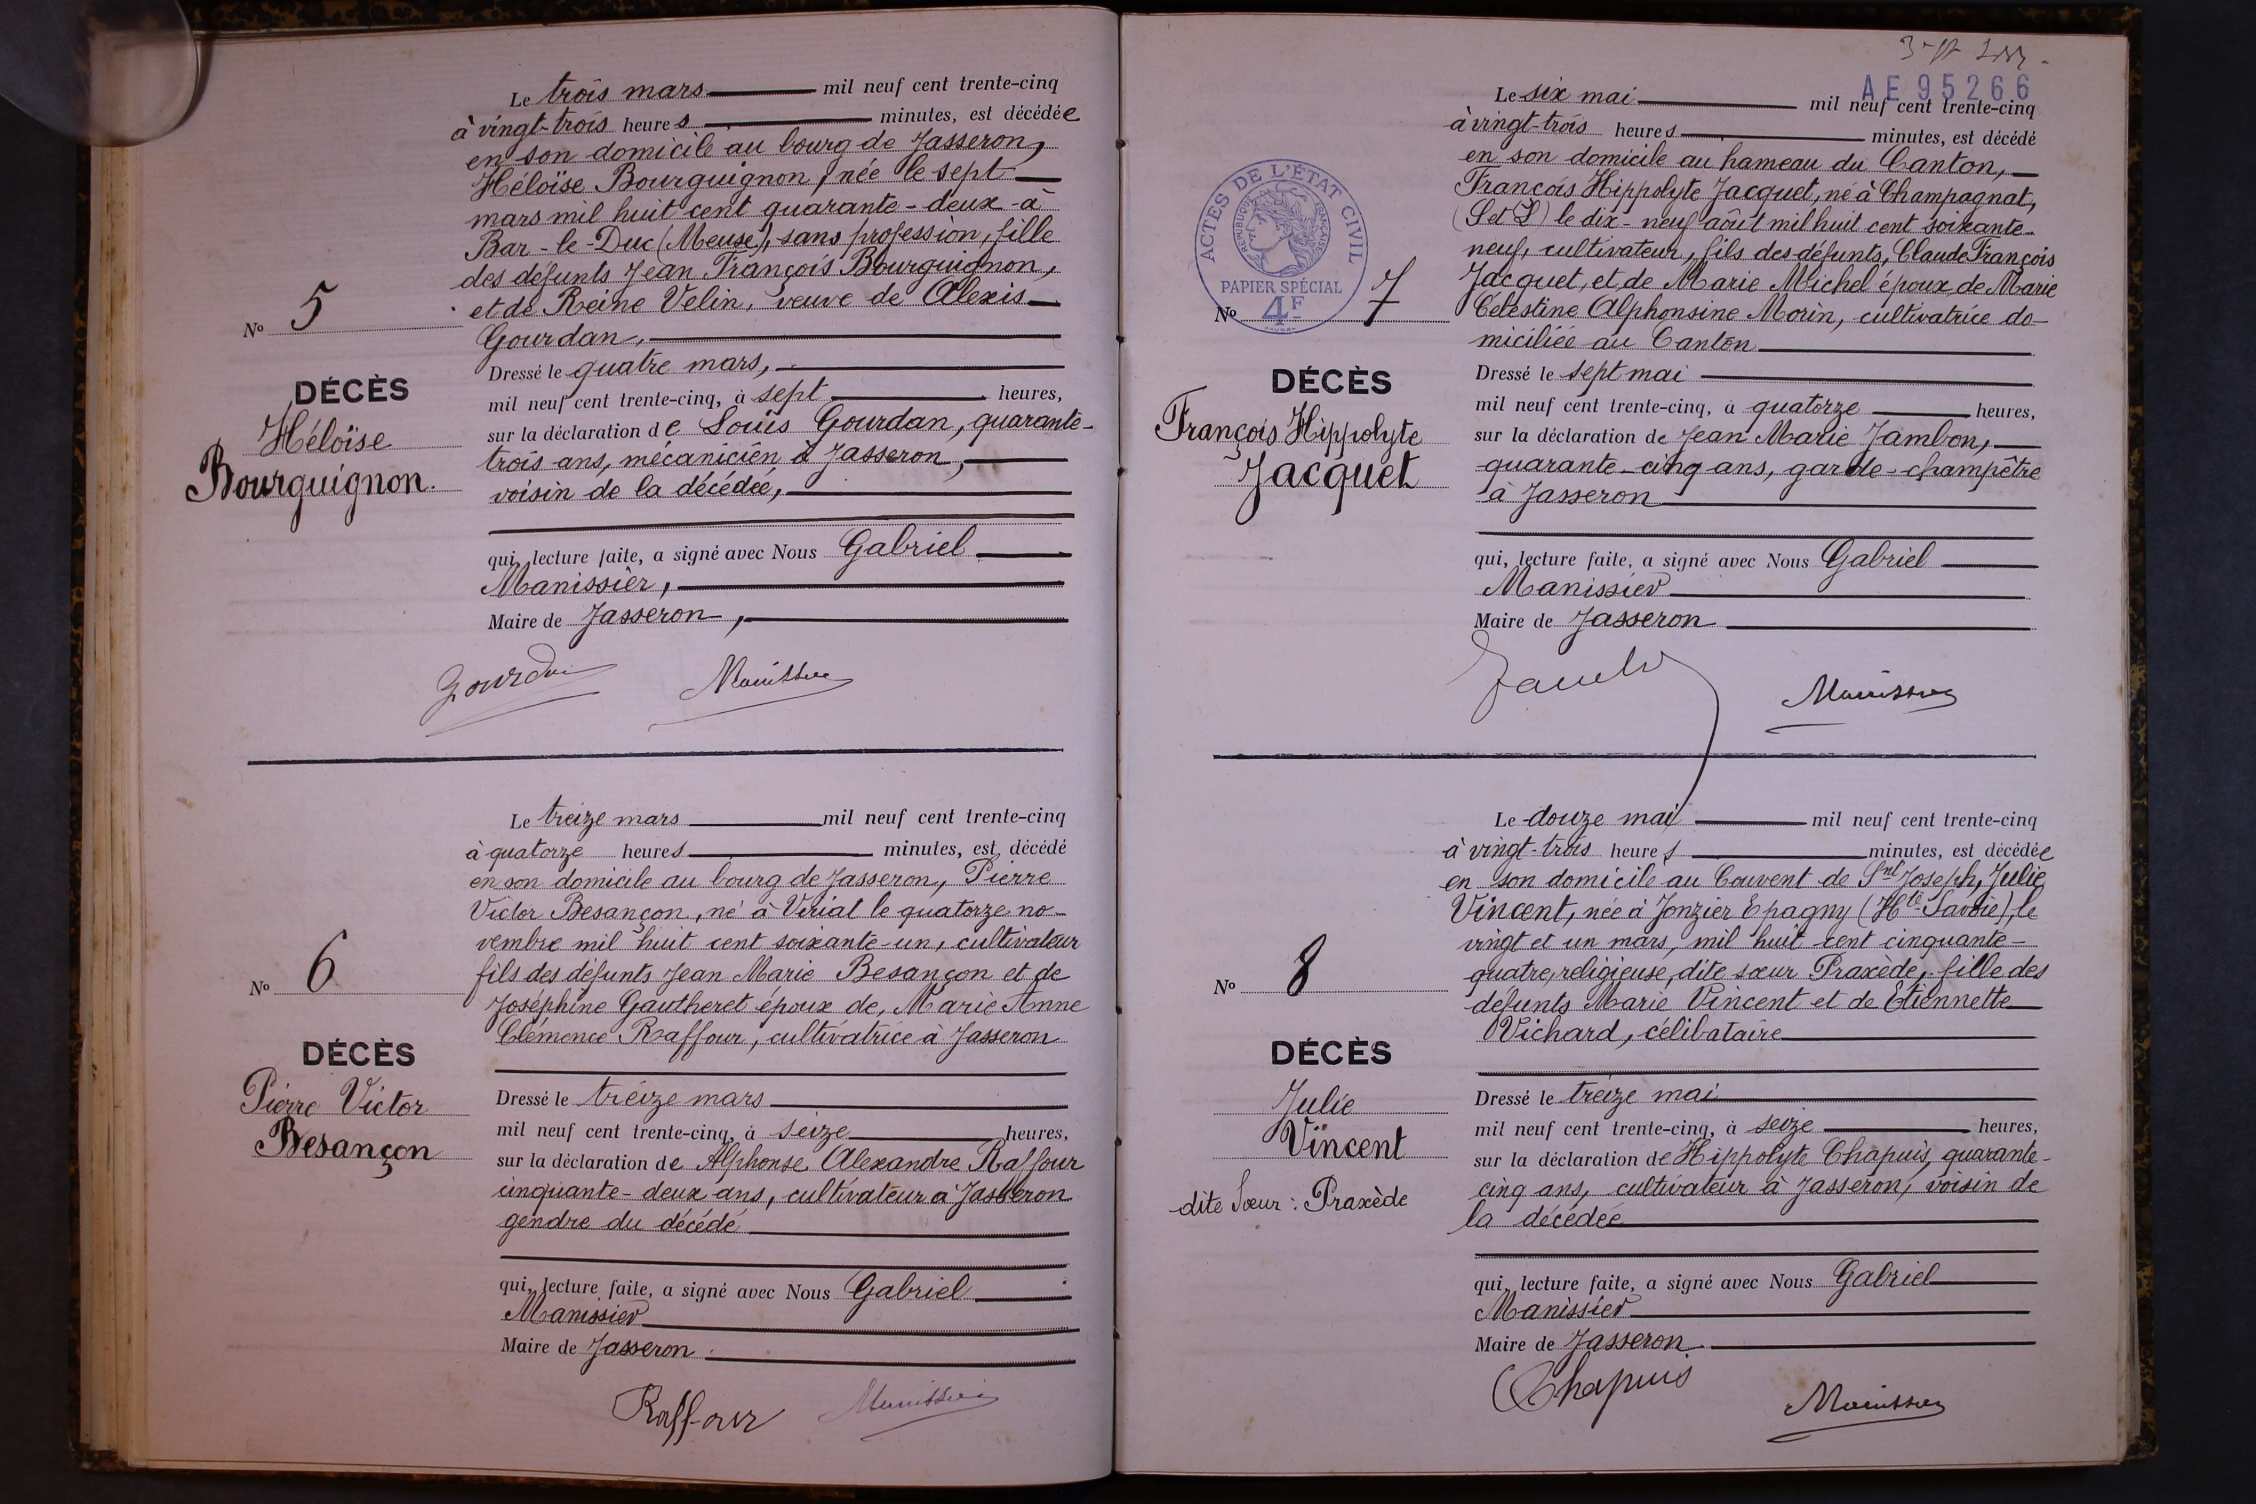 Le trois mars mil neuf cent trente-cinq
à vingt-trois heures minutes, est décédée
en son domicile au bourg de Jasseron,
Héloïse Bourguignon, née le sept
mars mil huit cent quarante-deux à
Bar-le-Duc (Meuse), sans profession, fille
des défunts Jean François Bourguignon,
et de Reine Velin, veuve de Alexis
Gourdan,
N° 5
DÉCÈS
Héloïse
Bourguignon.
Dressé le quatre mars,
mil neuf cent trente-cinq, à sept heures,
sur la déclaration de Louis Gourdan, quarante-
trois ans, mécanicien à Jasseron,
voisin de la décédée,
qui, lecture faite, a signé avec Nous Gabriel
Manissier,
Maire de Jasseron,
Gourdan Manissier
Le treize mars mil neuf cent trente-cinq
à quatorze heures minutes, est décédé
en son domicile au bourg de Jasseron, Pierre
Victor Besançon, né à Viriat le quatorze no-
vembre mil huit cent soixante-un, cultivateur
fils des défunts Jean Marie Besançon et de
Joséphine Gautheret époux de, Marie Anne
Clémence Raffour, cultivatrice à Jasseron
N° 6
DÉCÈS
Pierre Victor
Besançon
Dressé le treize mars
mil neuf cent trente-cinq, à seize heures,
sur la déclaration de Alphonse Alexandre Raffour
cinquante-deux ans, cultivateur à Jasseron
gendre du décédé
qui, lecture faite, a signé avec Nous Gabriel
Manissier
Maire de Jasseron
Raffour Manissier
AE 95266
Le six mai mil neuf cent trente-cinq
à vingt-trois heures minutes, est décédé
en son domicile au hameau du Canton,
François Hippolyte Jacquet, né à Champagnat,
(S et L) le dix-neuf août mil huit cent soixante-
neuf, cultivateur, fils des défunts, Claude François
Jacquet, et de Marie Michel époux de Marie
Célestine Alphonsine Morin, cultivatrice do-
miciliée au Canton
ACTES DE L'ÉTAT CIVIL
RÉPUBLIQUE FRANÇAISE
PAPIER SPÉCIAL
4F
N° 7
DÉCÈS
François Hippolyte
Jacquet
Dressé le sept mai
mil neuf cent trente-cinq, à quatorze heures,
sur la déclaration de Jean Marie Jambon,
quarante-cinq ans, garde-champêtre
à Jasseron
qui, lecture faite, a signé avec Nous Gabriel
Manissier
Maire de Jasseron
Manissier
Le douze mai mil neuf cent trente-cinq
à vingt-trois heures minutes, est décédée
en son domicile au Couvent de Snt Joseph, Julie
Vincent, née à Jonzier Epagny (Hte Savoie), le
vingt et un mars, mil huit cent cinquante-
quatre, religieuse, dite sœur Praxède, fille des
défunts Marie Vincent et de Etiennette
Vichard, célibataire
N° 8
DÉCÈS
Julie
Vincent
dite Sœur : Praxède
Dressé le treize mai
mil neuf cent trente-cinq, à seize heures,
sur la déclaration de Hippolyte Chapuis, quarante-
cinq ans, cultivateur à Jasseron, voisin de
la décédée
qui, lecture faite, a signé avec Nous Gabriel
Manissier
Maire de Jasseron
Chapuis Manissier